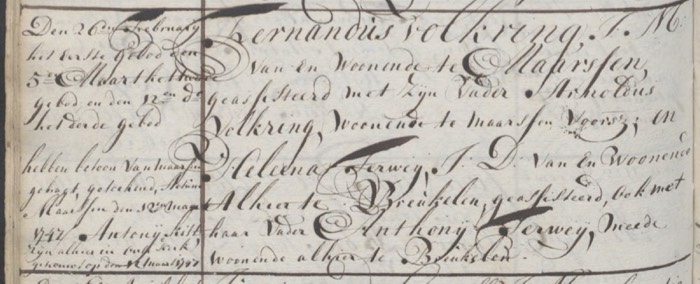 Den 26en February
het eerste gebod den
5en Maart het tweede
gebod en den 12en do
het derde gebod
hebben betoon van maarssen
gebragt, geteekend,
Maarssen den 12en maart
1747. Antonij
zijn alhier in
getrouwt op den maart 1747
Hernandus Volkring, J. M.
van en Woonende te Maarssen,
geassisteerd met zijn Vader Arnoldus
Volkring, Woonende te maarssen Voorsz; en
Heleena Terwey, J. D. van en Woonende
Alhier te Breukelen, geassisteerd, ook met
haar Vader Anthonij Terwey, meede
woonende alhier te Breukelen.